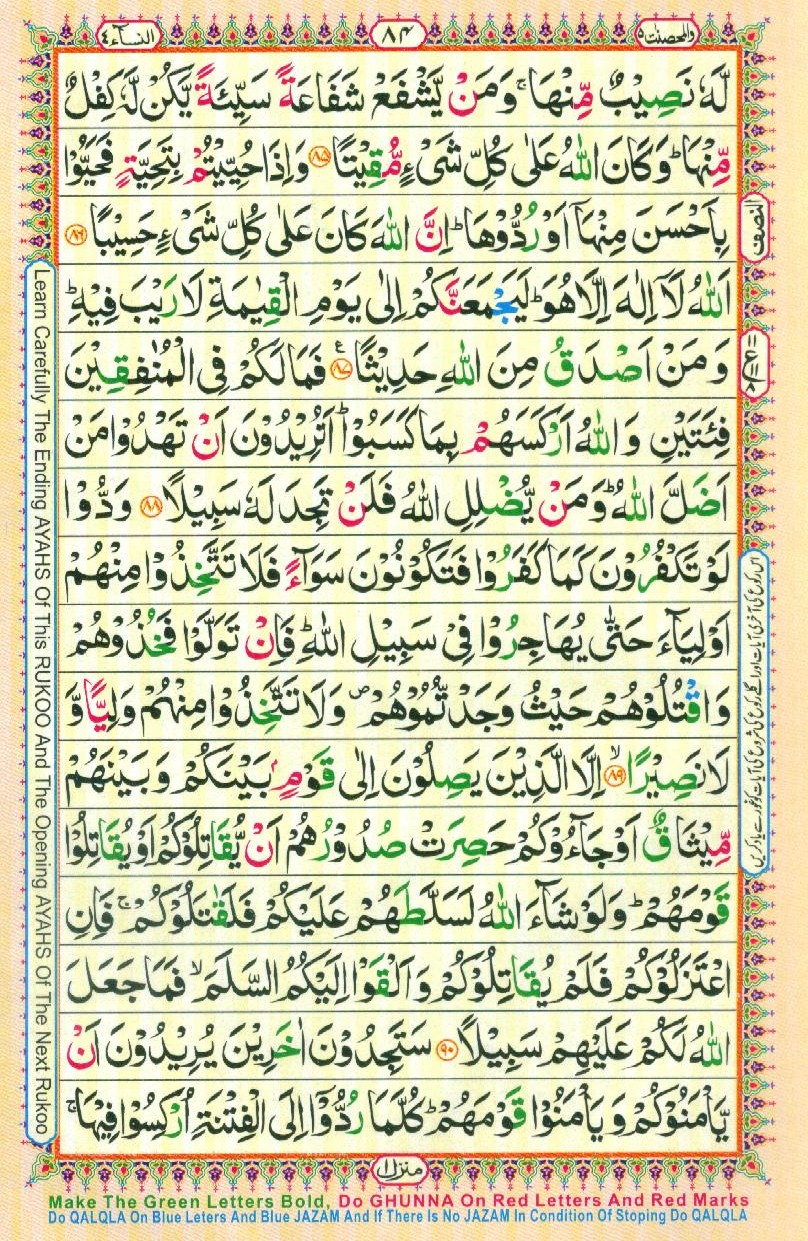 والمحصنت ٥
٨٤
النساء ٤
لَّهٗ نَصِيْبٌ مِّنْهَا ۚ وَمَنْ يَّشْفَعْ شَفَاعَةً سَيِّئَةً يَّكُنْ لَّهٗ كِفْلٌ
مِّنْهَا ؕ وَكَانَ اللّٰهُ عَلٰى كُلِّ شَىْءٍ مُّقِيْتًا ﴿۸۵﴾ وَاِذَا حُيِّيْتُمْ بِتَحِيَّةٍ فَحَيُّوْا
بِاَحْسَنَ مِنْهَاۤ اَوْ رُدُّوْهَا ؕ اِنَّ اللّٰهَ كَانَ عَلٰى كُلِّ شَىْءٍ حَسِيْبًا ﴿۸۶﴾
اَللّٰهُ لَاۤ اِلٰهَ اِلَّا هُوَ ؕ لَيَجْمَعَنَّكُمْ اِلٰى يَوْمِ الْقِيٰمَةِ لَا رَيْبَ فِيْهِ ؕ
وَمَنْ اَصْدَقُ مِنَ اللّٰهِ حَدِيْثًا ﴿۸۷﴾ ع فَمَا لَكُمْ فِى الْمُنٰفِقِيْنَ
فِئَتَيْنِ وَاللّٰهُ اَرْكَسَهُمْ بِمَا كَسَبُوْا ؕ اَتُرِيْدُوْنَ اَنْ تَهْدُوْا مَنْ
اَضَلَّ اللّٰهُ ؕ وَمَنْ يُّضْلِلِ اللّٰهُ فَلَنْ تَجِدَ لَهٗ سَبِيْلًا ﴿۸۸﴾ وَدُّوْا
لَوْ تَكْفُرُوْنَ كَمَا كَفَرُوْا فَتَكُوْنُوْنَ سَوَآءً فَلَا تَتَّخِذُوْا مِنْهُمْ
اَوْلِيَآءَ حَتّٰى يُهَاجِرُوْا فِىْ سَبِيْلِ اللّٰهِ ؕ فَاِنْ تَوَلَّوْا فَخُذُوْهُمْ
وَاقْتُلُوْهُمْ حَيْثُ وَجَدْتُّمُوْهُمْ ۪ وَلَا تَتَّخِذُوْا مِنْهُمْ وَلِيًّا وَّ
لَا نَصِيْرًا ۙ﴿۸۹﴾ اِلَّا الَّذِيْنَ يَصِلُوْنَ اِلٰى قَوْمٍۭ بَيْنَكُمْ وَبَيْنَهُمْ
مِّيْثَاقٌ اَوْ جَآءُوْكُمْ حَصِرَتْ صُدُوْرُهُمْ اَنْ يُّقَاتِلُوْكُمْ اَوْ يُقَاتِلُوْا
قَوْمَهُمْ ؕ وَلَوْ شَآءَ اللّٰهُ لَسَلَّطَهُمْ عَلَيْكُمْ فَلَقٰتَلُوْكُمْ ۚ فَاِنِ
اعْتَزَلُوْكُمْ فَلَمْ يُقَاتِلُوْكُمْ وَاَلْقَوْا اِلَيْكُمُ السَّلَمَ ۙ فَمَا جَعَلَ
اللّٰهُ لَكُمْ عَلَيْهِمْ سَبِيْلًا ﴿۹۰﴾ سَتَجِدُوْنَ اٰخَرِيْنَ يُرِيْدُوْنَ اَنْ
يَّاْمَنُوْكُمْ وَيَاْمَنُوْا قَوْمَهُمْ ؕ كُلَّمَا رُدُّوْۤا اِلَى الْفِتْنَةِ اُرْكِسُوْا فِيْهَا ۚ
النصف
اس رکوع کی آخری آیات اور اگلے رکوع کی شروع کی آیات کو غور سے یاد کریں
Learn Carefully The Ending AYAHS Of This RUKOO And The Opening AYAHS Of The Next Rukoo
منزل ١
Make The Green Letters Bold, Do GHUNNA On Red Letters And Red Marks
Do QALQLA On Blue Leters And Blue JAZAM And If There Is No JAZAM In Condition Of Stoping Do QALQLA